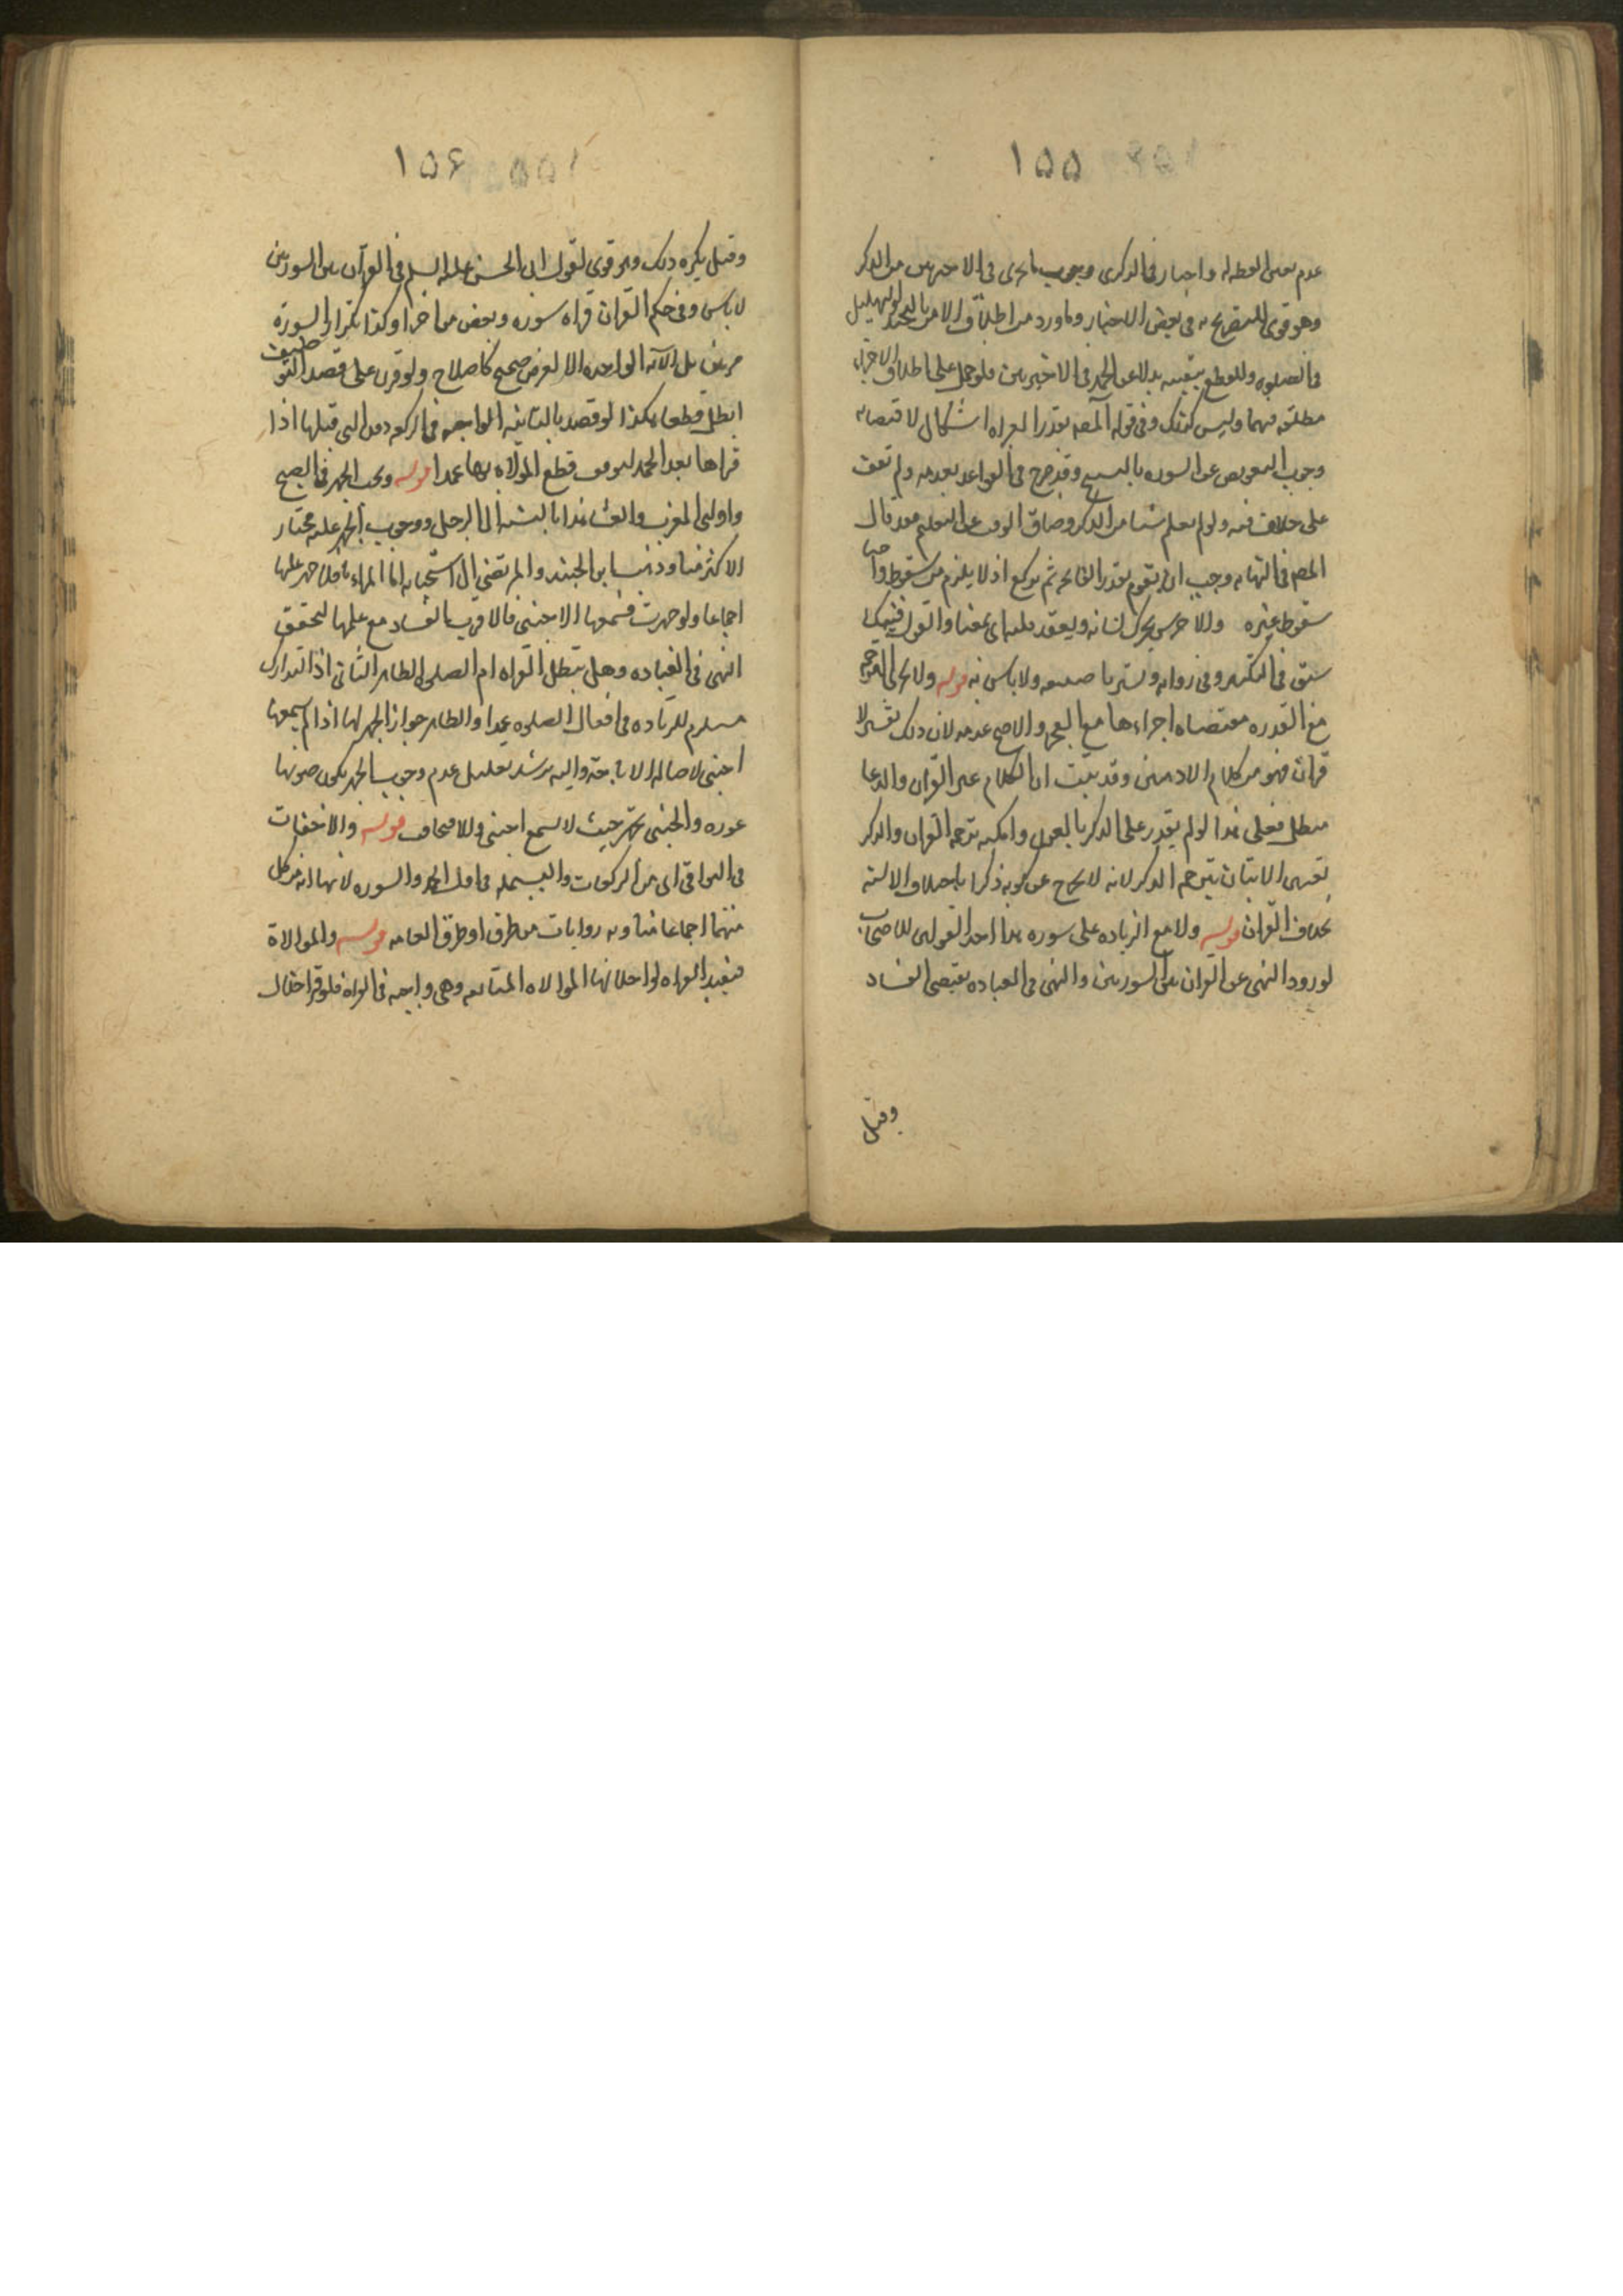 ١٥٥
عدم تعين لفظ له واختار في الذكرى وجوب ما يجزى في الاخيرتين من الذكر
وهو قوى للتصريح به في بعض الاخبار وما ورد من اطلاق الامر بالتحميد والتهليل
في الصلوه وللقطع بتعينه بدلا عن الحمد في الاخيرتين فلو حمل على اطلاق الاجزاء
مطلقه فيهما وليس كذلك وفى قوله المصنف بقدر القراه اشكال لاقتضائه
وجوب التعويض عن السوره بالتسبيح وقد صرح في القواعد بعدمه ولم نقف
على خلاف فيه ولو لم يعلم شيئا من الذكر وضاق الوقت عن التعلم فقد قال
المصنف في النهايه وجب ان يقوم بقدر الفاتحه ثم يركع اذ لا يلزم من سقوط واجب
سقوط غيره والاخرس يحرك لسانه ويعقد قلبه اى بمعناها والقول فيه كما
سبق في التكبير وفى روايه ويشير باصبعه ولا باس به قوله ولا تجزى الترجمه
مع القدره مقتضاه اجزاءها مع العجز والاصح عدمه لان ذلك تفسير لا
قران فهو من كلام الادميين وقد ثبت ان الكلام غير القران والدعا
مبطل فعلى هذا لو لم يقدر على الذكر بالعربى وامكنه ترجمه القران والذكر
تعين الاتيان بترجمه الذكر لانه لا يخرج عن كونه ذكرا باختلاف الالسنه
بخلاف القران قوله ولا مع الزياده على سوره هذا احد القولين للاصحاب
لورود النهى عن القران بين السورتين والنهى في العباده يقتضى الفساد
وقيل
١٥٦
وقيل يكره ذلك وهو قوى لقول ابى الحسن عليه السلم في القران بين السورتين
لا باس وفى حكم القران قراه سوره وبعض من اخرا وكذا تكرار السورة
مرتين بل الآيه الواحده الا لغرض صحيح كاصلاح ولو قرن على قصد التوظيف
ابطل قطعا وكذا لو قصد بالثانيه الواجبه في الركعه دون التى قبلها اذا
قراها بعد الحمد لوقوف قطع الموالاه بها عمدا قوله ويجب الجهر في الصبح
واولتى المغرب والعشا هذا بالنسبه الى الرجل ووجوب الجهر عليه مختار
الاكثر منا وذهب ابن الجنيد والمرتضى الى استحبابه اما المراه فلا جهر عليها
اجماعا ولو جهرت فسمعها الاجنبى فالاقرب الفساد مع علمها لتحقق
النهى في العباده وهل تبطل القراه ام الصلوه الظاهر الثانى اذ التدارك
مستلزم للزياده في افعال الصلوه عمدا والظاهر جواز الجهر لها اذا لم يسمعها
اجنبى لاصاله الاباحة واليه يرشد تعليل عدم وجوب الجهر بكون صوتها
عوره والخنثى تجهر حيث لا يسمع اجنبى والا فتخافت قوله والاخفات
في البواقى اى من الركعات والبسمله في اول الحمد والسوره لانها اية من كل
منهما اجماعا منا وبه روايات من طرق او طرق العامه قوله والموالاة
فيعيد القراه لو اخل بها الموالاه المتابعه وهى واجبه في القراه فلو قرا خلال